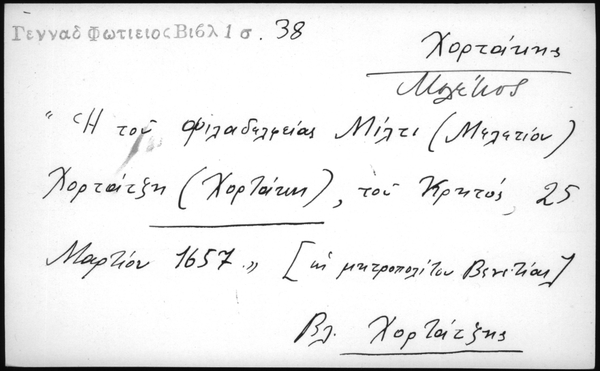 Γενναδ Φωτιειος Βιβλ 1 σ. 38
Χορτάκης
Μελέτιος
"Ἡ τοῦ Φιλαδελφείας Μίλτι (Μελετίου)
Χορτάτζη (Χορτάκη), τοῦ Κρητός, 25
Μαρτίου 1657." [κ μητροπολίτου Βενετίας]
Βλ. Χορτάτζης